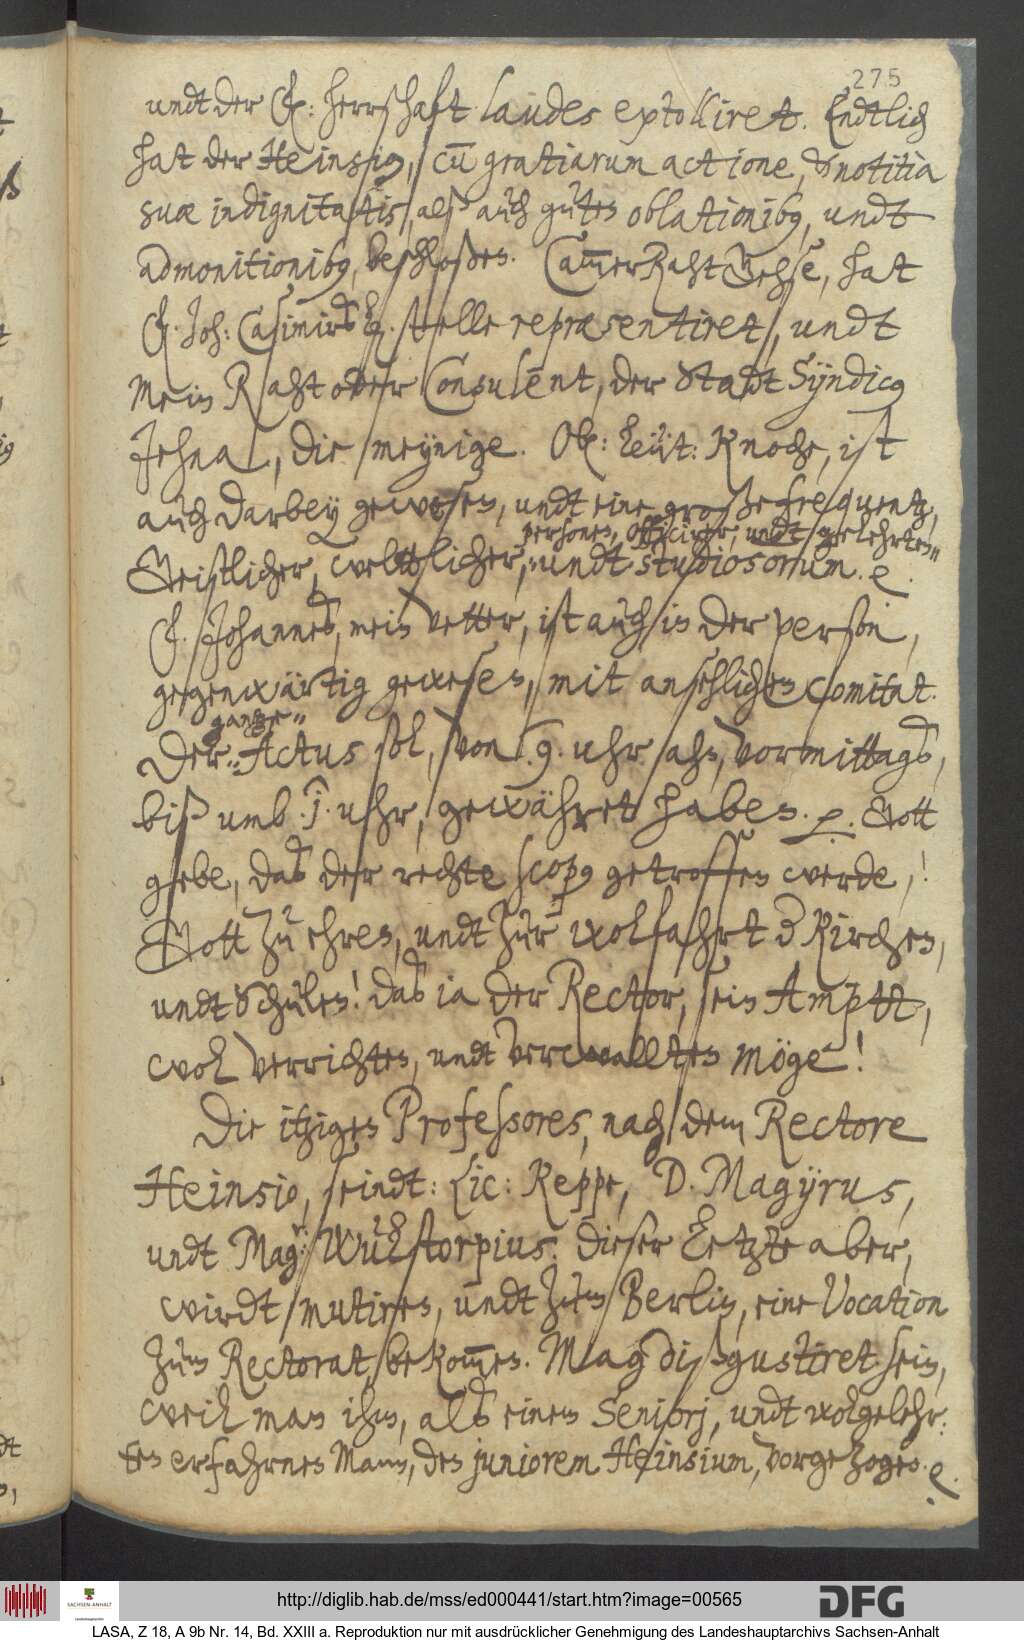 275
undt der G: herrschaft laudes extolliret. Endtlich
hat der Heinsig, cū gratiarum actione, & notitia
suæ indignitatis, alß auch guten oblationibg, undt
admonitionibg, beschloßen. Cam̄erRaht Gehse, hat
G. Joh: Casimirs Ld. stelle repræsentiret, undt
mein Raht oder Consulent, der Stadt Sÿndicg
Jehna, die meynige. Ob: Leüt: Knoche, ist
auch darbey gewesen, undt eine große frequentz,
personen, Officirer, undt gelehrten"
Geistlicher, weltlicher,"undt studiosorum. e.
G. Johannes, mein Vetter, ist auch in der person,
gegenwärtig gewesen, mit ansehlichen Comitat.
gantze"
Der" Actus sol, von .9. uhr ahn, vormittags,
biß umb .1. uhr, gewähret haben. e. Gott
gebe, das der rechte scopg getroffen werde,!
Gott zu ehren, undt zur wolfahrt d Kirchen,
undt Schulen! das ia der Rector, sein Amptt,
wol verrichten, undt verwallten möge!
Die itzigen Professores, nach dem Rectore
Heinsio, seindt: Lic: Keppe, D. Magÿrus,
undt Magr: Wulstorpius. Dieser Letzte aber,
wirdt mutiren, undt zum Berlin, eine Vocation
zum Rectorat bekom̄en. Mag dißgustiret sein,
weil man ihm, als einem Seniorj, undt wolgelehr:
ten erfahrnen Mann, den juniorem Heinsium, vorgezogen. e.
http://diglib.hab.de/mss/ed000441/start.htm?image=00565
SACHSEN-ANHALT
DFG
LASA, Z 18, A 9b Nr. 14, Bd. XXIII a. Reproduktion nur mit ausdrücklicher Genehmigung des Landeshauptarchivs Sachsen-Anhalt